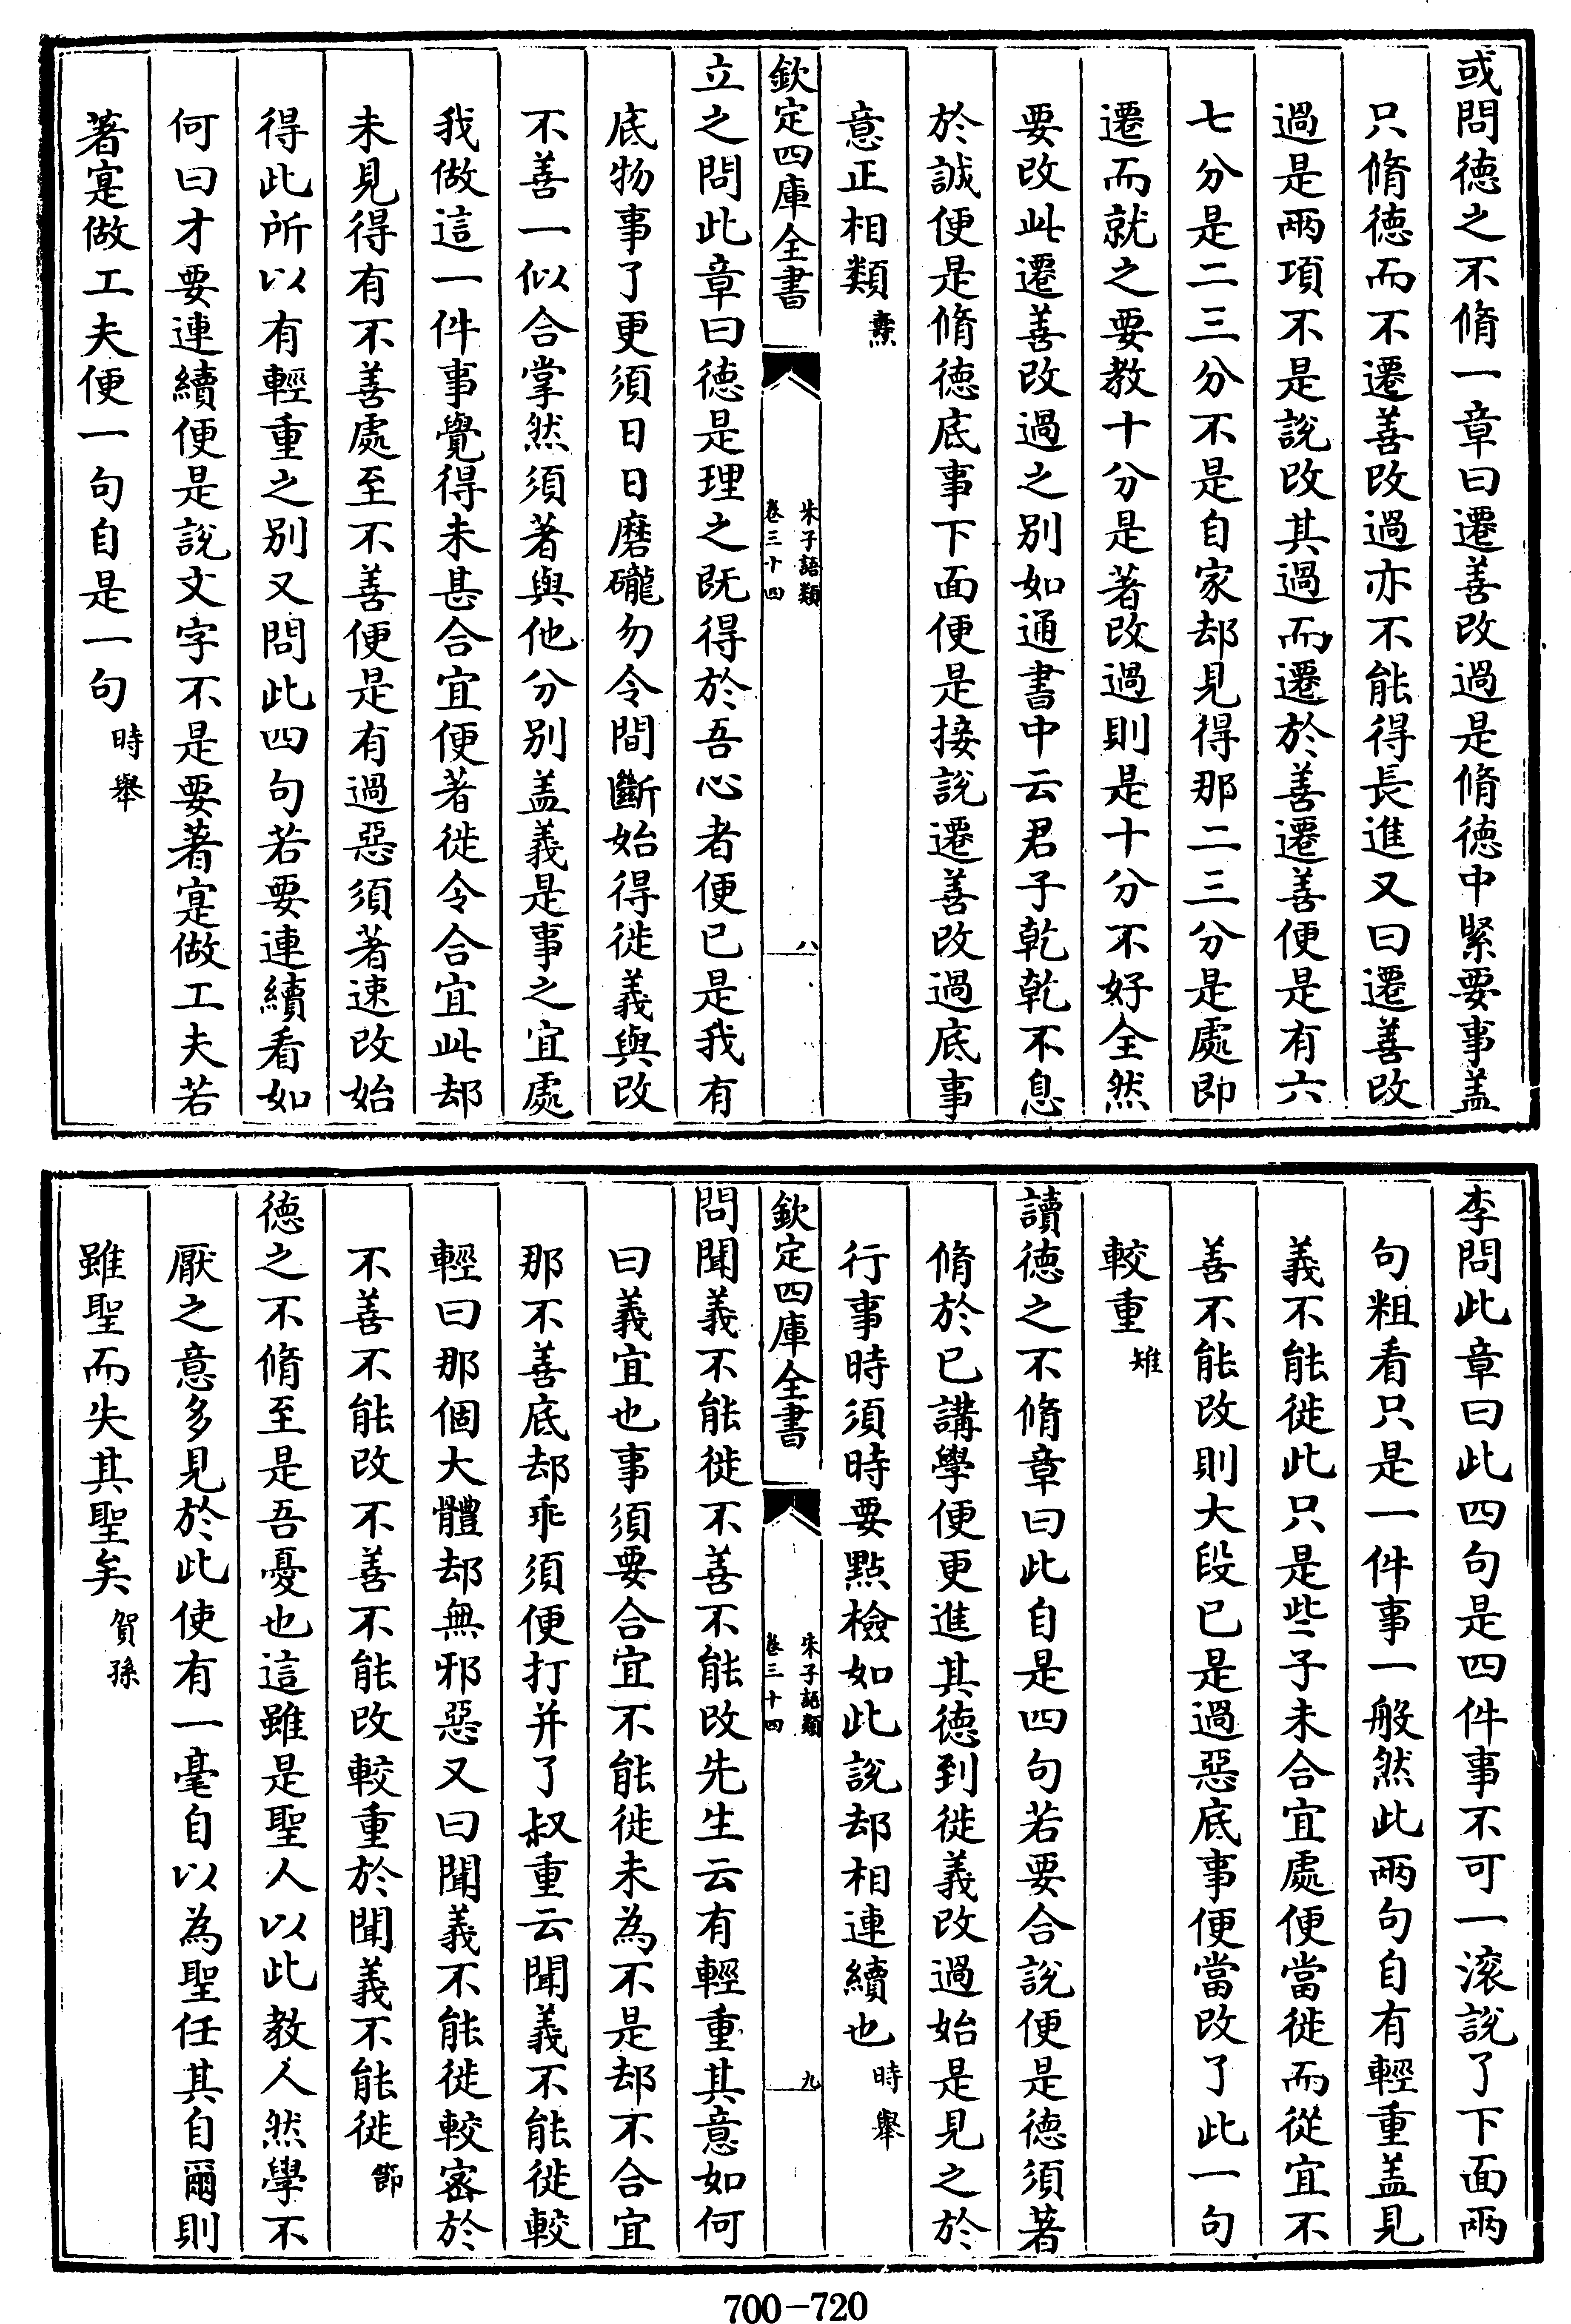 或問徳之不脩一章曰遷善改過是脩徳中緊要事盖
只脩徳而不遷善改過亦不能得長進又曰遷善改
過是兩項不是説改其過而遷於善遷善便是有六
七分是二三分不是自家却見得那二三分是處即
遷而就之要教十分是著改過則是十分不好全然
要改此遷善改過之别如通書中云君子乾乾不息
於誠便是脩徳底事下面便是接説遷善改過底事
意正相類燾
欽定四庫全書
朱子語類
卷三十四
八
立之問此章曰徳是理之既得於吾心者便已是我有
底物事了更須日日磨礲勿令間斷始得徙義與改
不善一似合掌然須著與他分别盖義是事之宜處
我做這一件事覺得未甚合宜便著徙令合宜此却
未見得有不善處至不善便是有過惡須著速改始
得此所以有輕重之别又問此四句若要連續看如
何曰才要連續便是説文字不是要著寔做工夫若
著寔做工夫便一句自是一句時舉
李問此章曰此四句是四件事不可一滚説了下面兩
句粗看只是一件事一般然此兩句自有輕重盖見
義不能徙此只是些子未合宜處便當徙而從宜不
善不能改則大段已是過惡底事便當改了此一句
較重雉
讀徳之不脩章曰此自是四句若要合説便是徳須著
脩於已講學便更進其徳到徙義改過始是見之於
行事時須時要點檢如此説却相連續也時舉
欽定四庫全書
朱子語類
卷三十四
九
問聞義不能徙不善不能改先生云有輕重其意如何
曰義宜也事須要合宜不能徙未為不是却不合宜
那不善底却乖須便打并了叔重云聞義不能徙較
輕曰那個大體却無邪惡又曰聞義不能徙較宻於
不善不能改不善不能改較重於聞義不能徙節
徳之不脩至是吾憂也這雖是聖人以此教人然學不
厭之意多見於此使有一毫自以為聖任其自爾則
雖聖而失其聖矣賀孫
700-720